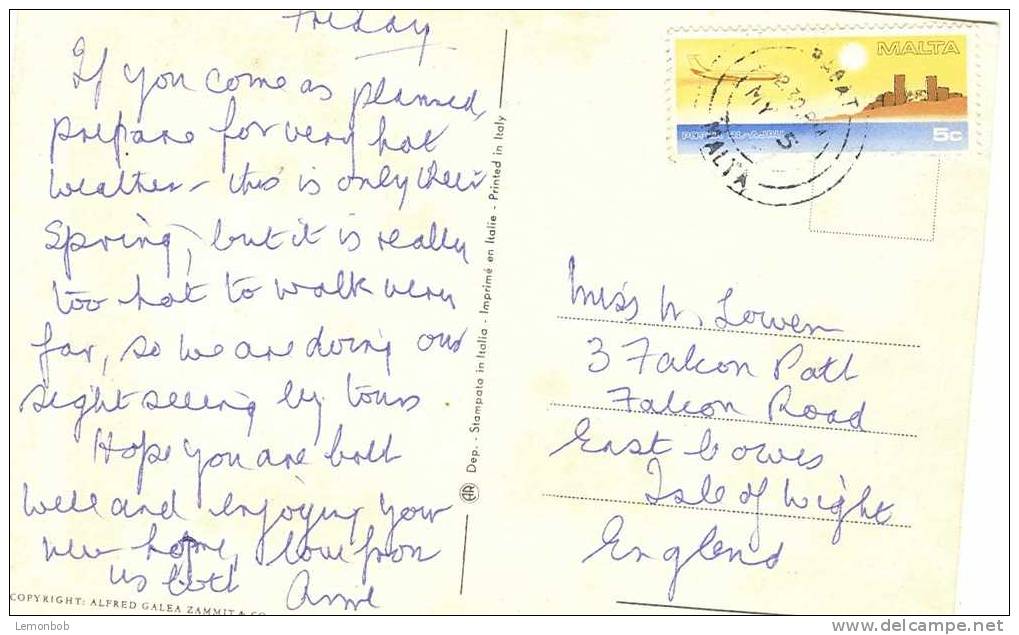 Friday
If you come as planned,
prepare for very hot
weather – this is only their
Spring, but it is really
too hot to walk very
far, so we are doing our
sight seeing by tours.
Hope you are both
well and enjoying your
new home, love from
us both Anne
COPYRIGHT: ALFRED GALEA ZAMMIT & CO
Dep. - Stampato in Italia - Imprimé en Italie - Printed in Italy
MALTA
5c
RABAT
MY 5
MALTA
Miss M. Lowen
3 Falcon Path
Falcon Road
East Cowes
Isle of Wight
England
Lemonbob
delcampe.net